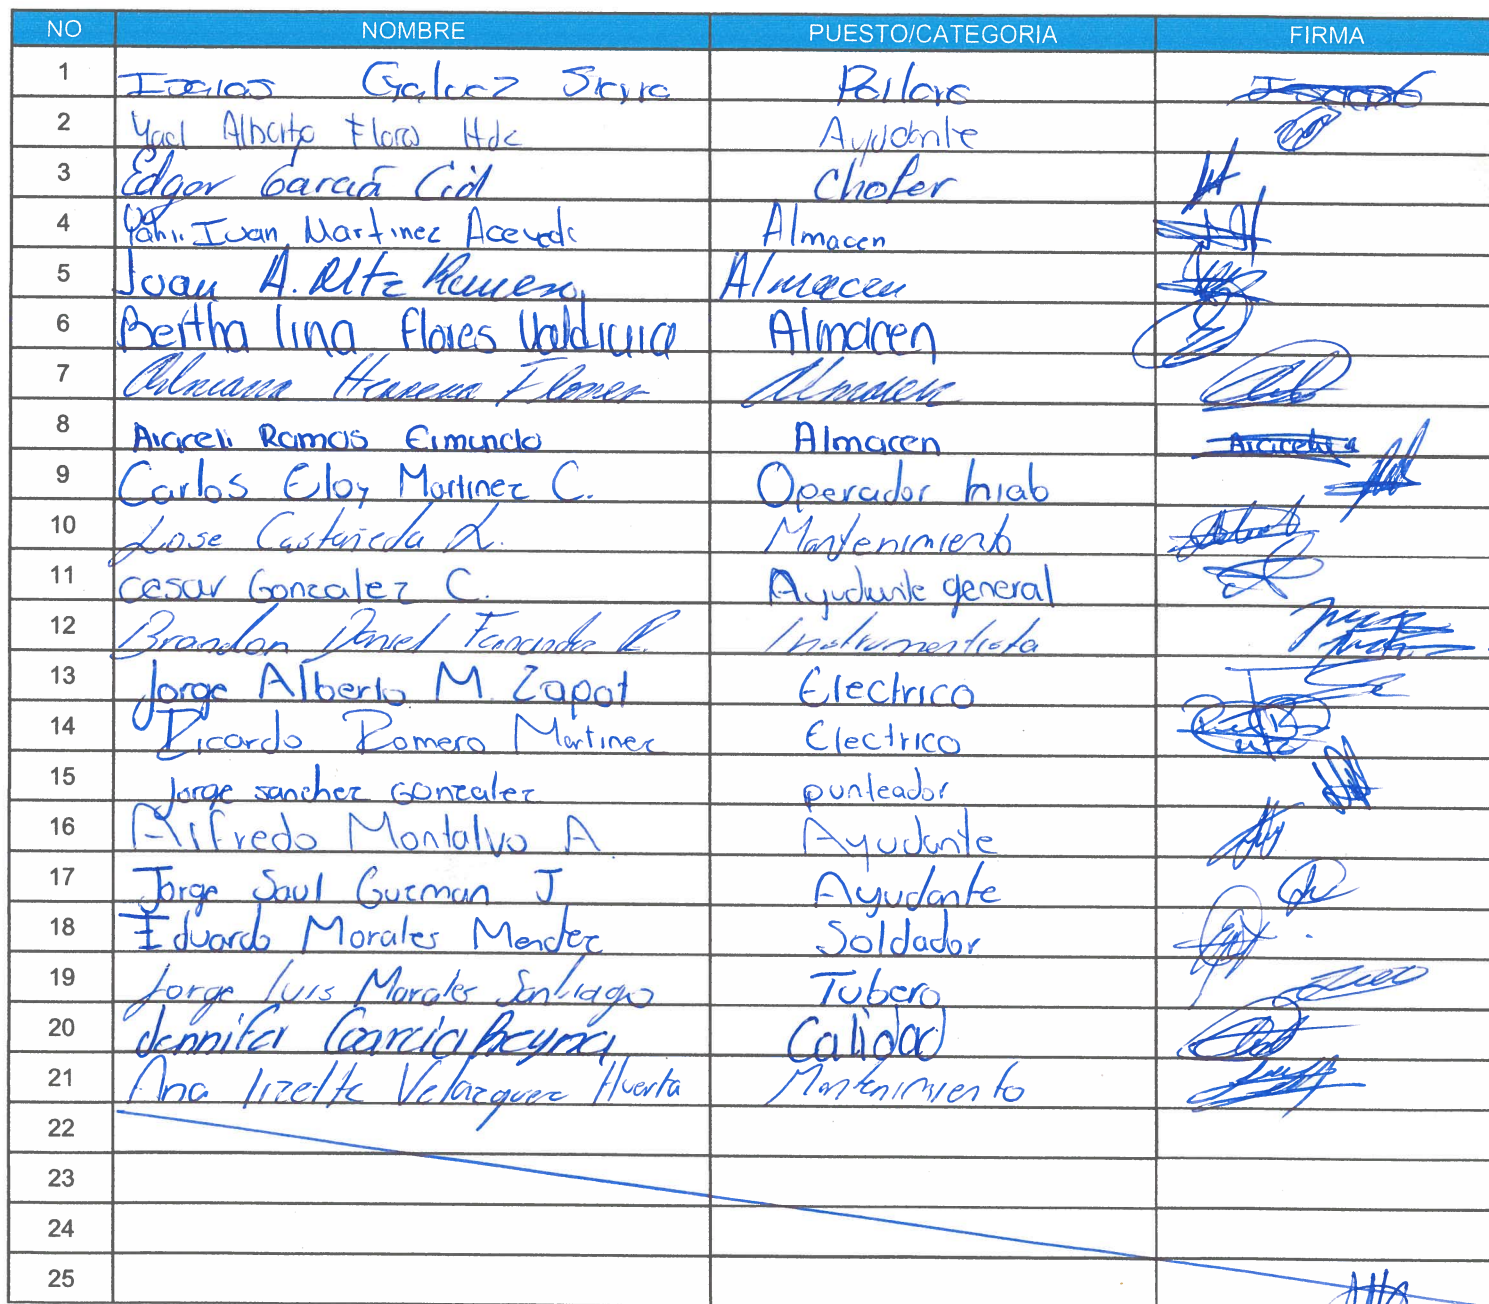 NO NOMBRE PUESTO/CATEGORIA FIRMA
1 Isaias Galvez Sierra Pailero
2 Yael Alberto Flores Hdz Ayudante
3 Edgar García Cid Chofer
4 Ivan Martinez Acevedo Almacen
5 Juan A. Almacen
6 Bertha lina Flores Valdivia Almacen
7 Herrera Flores Almacen
8 Araceli Ramos Almacen Araceli
9 Carlos Eloy Martinez C. Operador hiab
10 Jose Castañeda L. Mantenimiento
11 cesar Gonzalez C. Ayudante general
12 Brandon Daniel Fernandez R. Instrumentista
13 Jorge Alberto M. Zapot Electrico
14 Ricardo Romero Martinez Electrico
15 Jorge sanchez Gonzalez punteador
16 Alfredo Montalvo A Ayudante
17 Jorge Saul Guzman J Ayudante
18 Eduardo Morales Mendez Soldador
19 Jorge luis Morales Santiago Tubero
20 Jennifer Garcia Reyna Calidad
21 Ana lizette Velazquez Huerta Mantenimiento
22
23
24
25